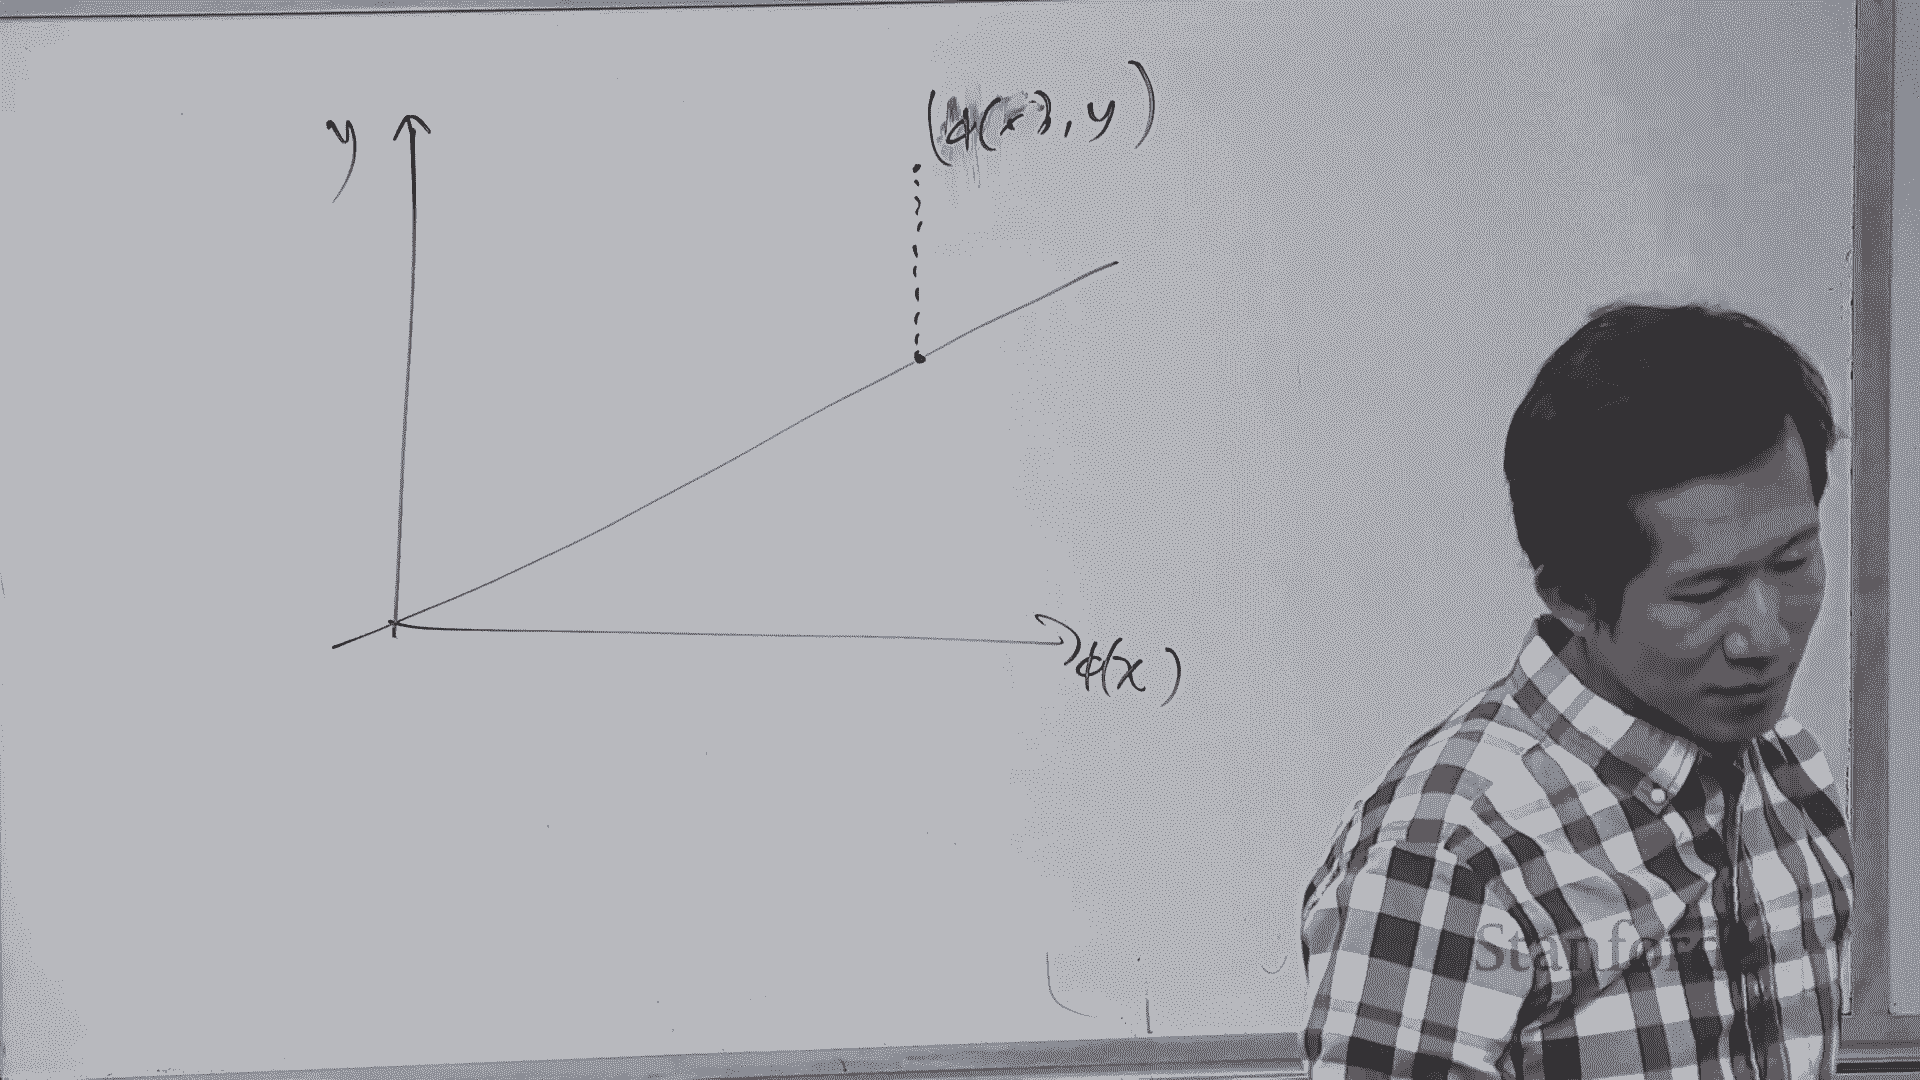 (ϕ(x), y)
y
ϕ(x)
Stanford